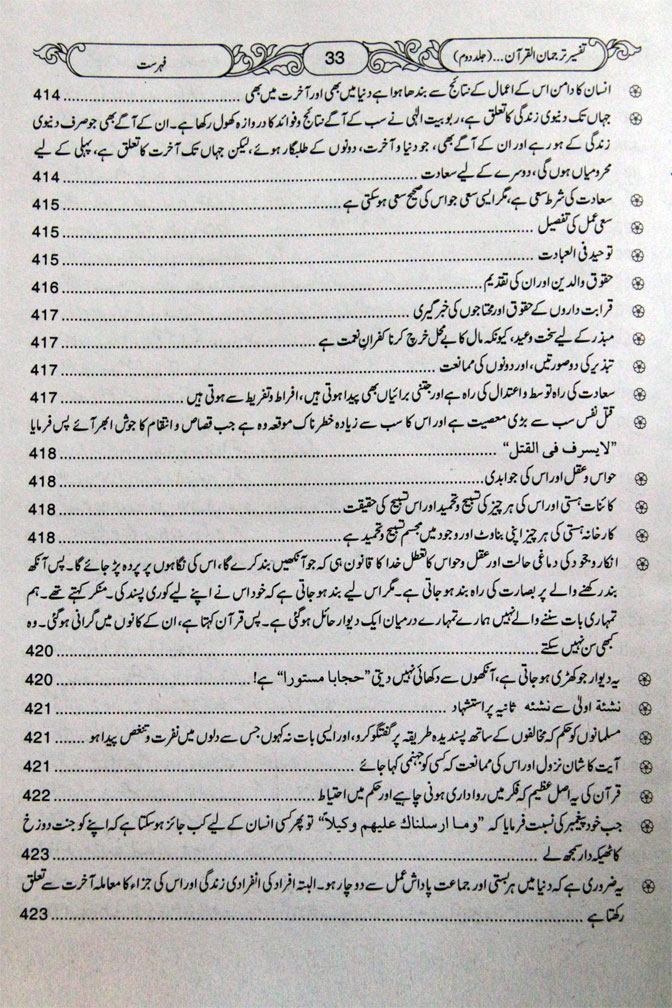 تفسیر ترجمان القرآن... (جلد دوم) 33 فہرست
انسان کا دامن اس کے اعمال کے نتائج سے بندھا ہوا ہے دنیا میں بھی اور آخرت میں بھی ........ 414
جہاں تک دنیوی زندگی کا تعلق ہے، ربوبیت الٰہی نے سب کے آگے نتائج و فوائد کا دروازہ کھول رکھا ہے۔ ان کے آگے بھی جو صرف دنیوی
زندگی کے ہو رہے اور ان کے آگے بھی، جو دنیا و آخرت، دونوں کے طلبگار ہوئے، لیکن جہاں تک آخرت کا تعلق ہے، پہلی کے لیے
محرومیاں ہوں گی، دوسرے کے لیے سعادت ........ 414
سعادت کی شرط سعی ہے، مگر ایسی سعی جو اس کی صحیح سعی ہوسکتی ہے ........ 415
سعی عمل کی تفصیل ........ 415
توحید فی العبادت ........ 415
حقوق والدین اور ان کی تقدیم ........ 416
قرابت داروں کے حقوق اور محتاجوں کی خبرگیری ........ 417
مبذر کے لیے سخت وعید، کیونکہ مال کا بے محل خرچ کرنا کفران نعمت ہے ........ 417
تبذیر کی دو صورتیں، اور دونوں کی ممانعت ........ 417
سعادت کی راہ توسط و اعتدال کی راہ ہے اور جتنی برائیاں بھی پیدا ہوتی ہیں، افراط و تفریط سے ہوتی ہیں ........ 417
قتل نفس سب سے بڑی معصیت ہے اور اس کا سب سے زیادہ خطرناک موقعہ وہ ہے جب قصاص و انتقام کا جوش ابھر آئے پس فرمایا
”لا یسرف فی القتل“ ........ 418
حواس و عقل اور اس کی جوابدی ........ 418
کائنات ہستی اور اس کی ہر چیز کی تسبیح و تحمید اور اس تسبیح کی حقیقت ........ 418
کارخانہ ہستی کی ہر چیز اپنی بناوٹ اور وجود میں مجسم تسبیح و تحمید ہے ........ 418
انکار و جحود کی دماغی حالت اور عقل و حواس کا تعطل خدا کا قانون ہی کہ جو آنکھیں بند کرے گا، اس کی نگاہوں پر پردہ پڑ جائے گا۔ پس آنکھ
بند رکھنے والے پر بصارت کی راہ بند ہو جاتی ہے۔ مگر اس لیے بند ہو جاتی ہے کہ خود اس نے اپنے لیے کوری پسند کی۔ منکر کہتے تھے۔ ہم
تمہاری بات سننے والے نہیں ہمارے تمہارے درمیان ایک دیوار حائل ہو گئی ہے۔ پس قرآن کہتا ہے، ان کے کانوں میں گرانی ہو گئی۔ وہ
کبھی سن نہیں سکتے ........ 420
یہ دیوار جو کھڑی ہو جاتی ہے، آنکھوں سے دکھائی نہیں دیتی ”حجابا مستورا“ ہے! ........ 420
نشئۃ اولیٰ سے نشئہ ثانیہ پر استشہاد ........ 421
مسلمانوں کو حکم کہ مخالفوں کے ساتھ پسندیدہ طریقہ پر گفتگو کرو، اور ایسی بات نہ کہوں جس سے دلوں میں نفرت و تنغص پیدا ہو ........ 421
آیت کا شان نزول اور اس کی ممانعت کہ کسی کو جہنمی کہا جائے ........ 421
قرآن کی یہ اصل عظیم کہ فکر میں رواداری ہونی چاہیے اور حکم میں احتیاط ........ 422
جب خود پیغمبر کی نسبت فرمایا کہ ”وما ارسلناك علیهم وکیلاً“ تو پھر کسی انسان کے لیے کب جائز ہو سکتا ہے کہ اپنے کو جنت دوزخ
کا ٹھیکہ دار سمجھ لے ........ 423
یہ ضروری ہے کہ دنیا میں ہر بستی اور جماعت پاداش عمل سے دوچار ہو۔ البتہ افراد کی انفرادی زندگی اور اس کی جزاء کا معاملہ آخرت سے تعلق
رکھتا ہے ........ 423